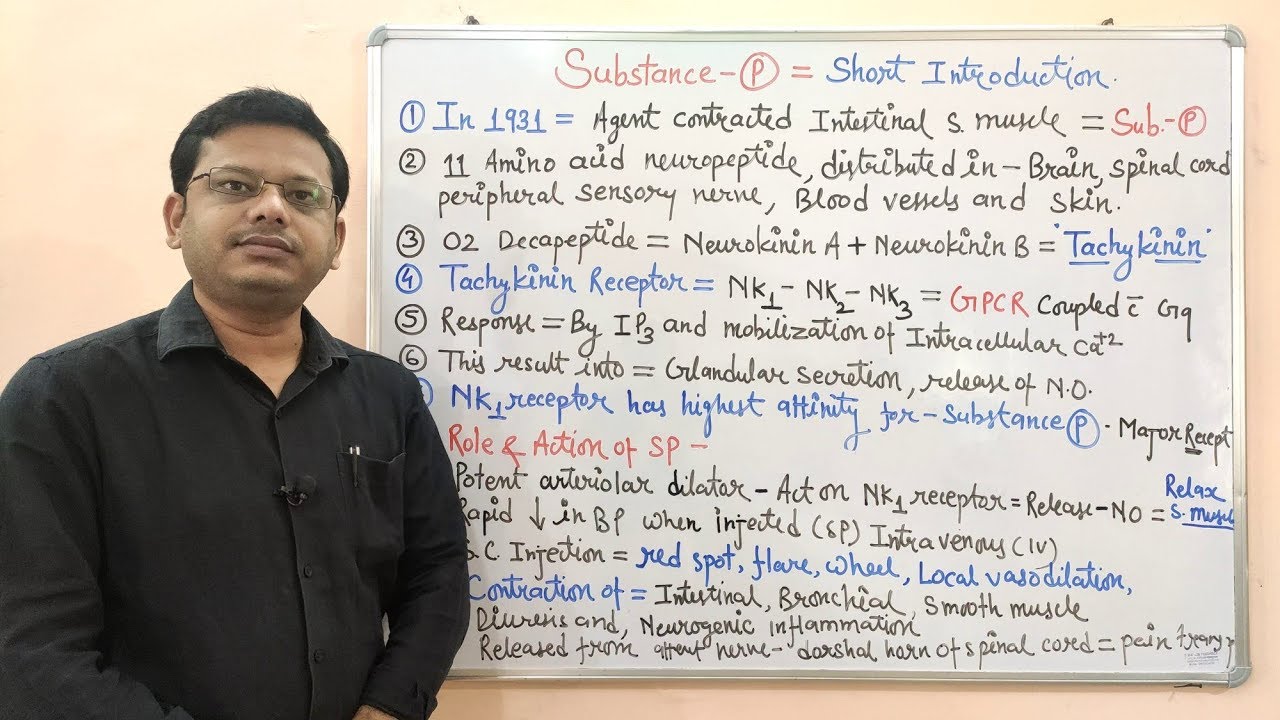 Substance-Ⓟ = Short Introduction.
① In 1931 = Agent contracted Intestinal S. muscle = Sub.-Ⓟ
② 11 Amino acid neuropeptide, distributed in - Brain, spinal cord
peripheral sensory nerve, Blood vessels and skin.
③ 02 Decapeptide = Neurokinin A + Neurokinin B = 'Tachykinin'
④ Tachykinin Receptor = NK1 - NK2 - NK3 = GPCR Coupled c̄ Gq
⑤ Response = By IP3 and mobilization of Intracellular Ca+2
⑥ This result into = Glandular secretion, release of N.O.
NK1 receptor has highest affinity for - Substance Ⓟ - Major Recept
Role & Action of SP -
Potent arteriolar dilator - Act on NK1 receptor = Release - NO = Relax S. muscl
Rapid ↓ in BP when injected (SP) Intravenous (IV)
S.C. Injection = red spot, flare, wheel, Local vasodilation,
Contraction of = Intestinal, Bronchial, Smooth muscle
Diuresis and, Neurogenic inflammation
Released from nerve - dorshal horn of spinal cord = pain